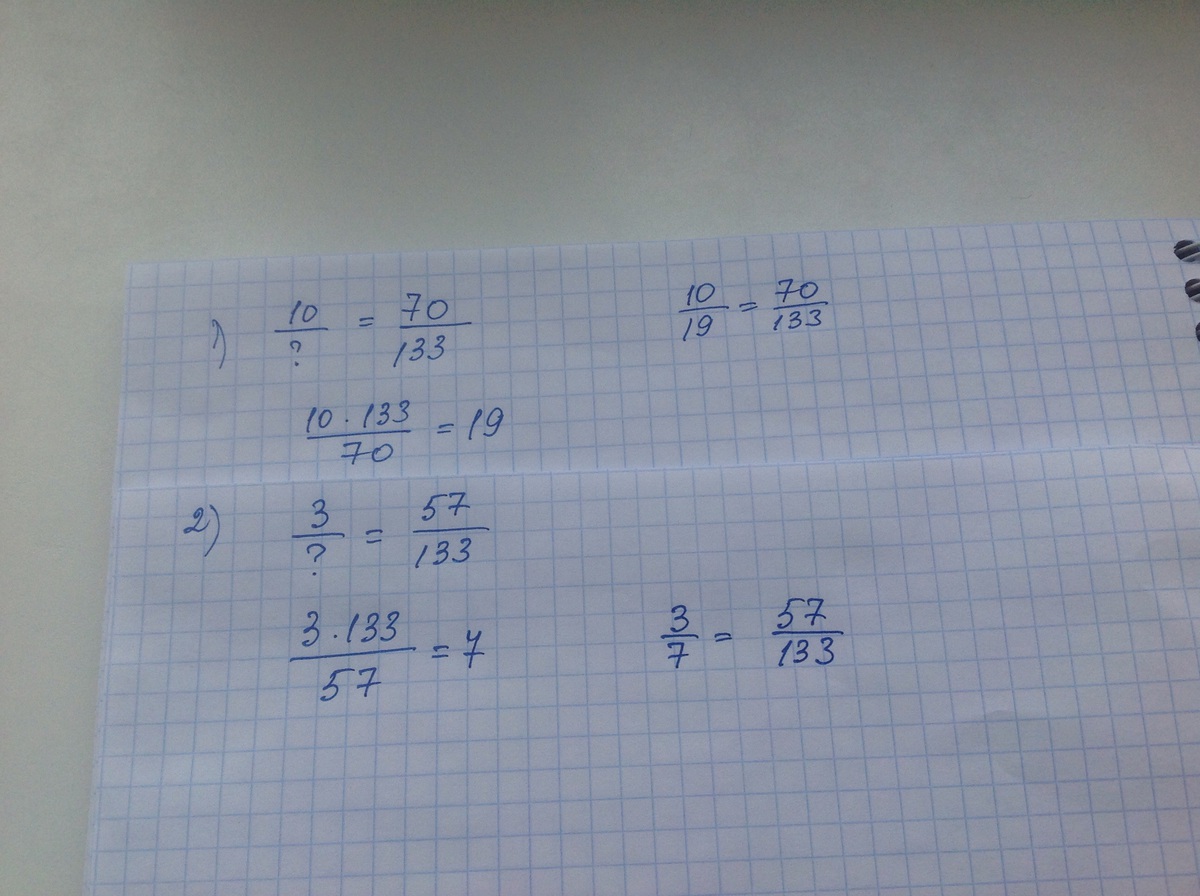 1) 10/? = 70/133    10/19 = 70/133
10 · 133/70 = 19
2) 3/? = 57/133
3 · 133/57 = 7    3/7 = 57/133